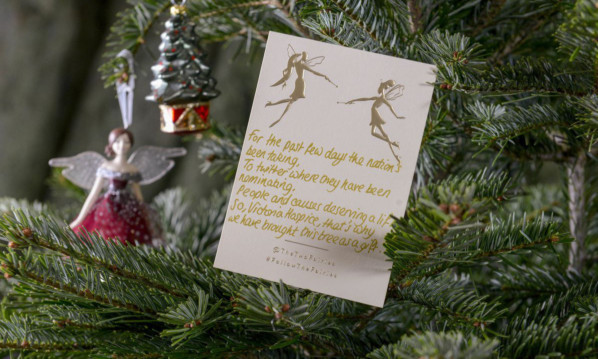 For the past few days the nation's
been taking,
To twitter where they have been
nominating,
People and causes deserving a lift
So, Victoria Hospice, that's why
we have brought this tree as a gift
@TheTwoFairies
#FollowTheFairies